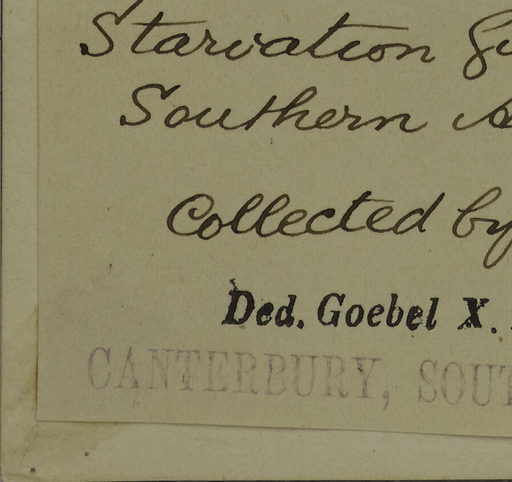 Starvation Gu
Southern A
Collected by
Ded. Goebel X.
CANTERBURY, SOUT